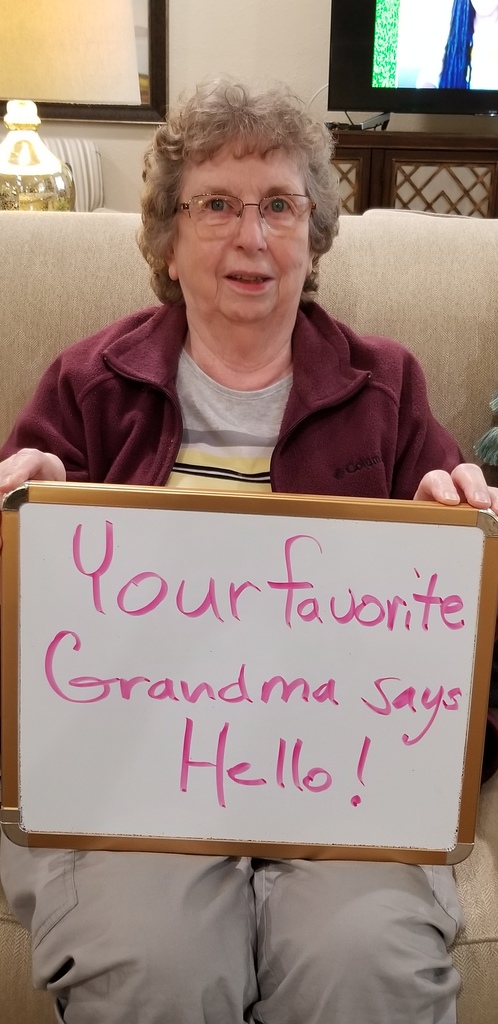 Columbia
Your favorite
Grandma says
Hello!